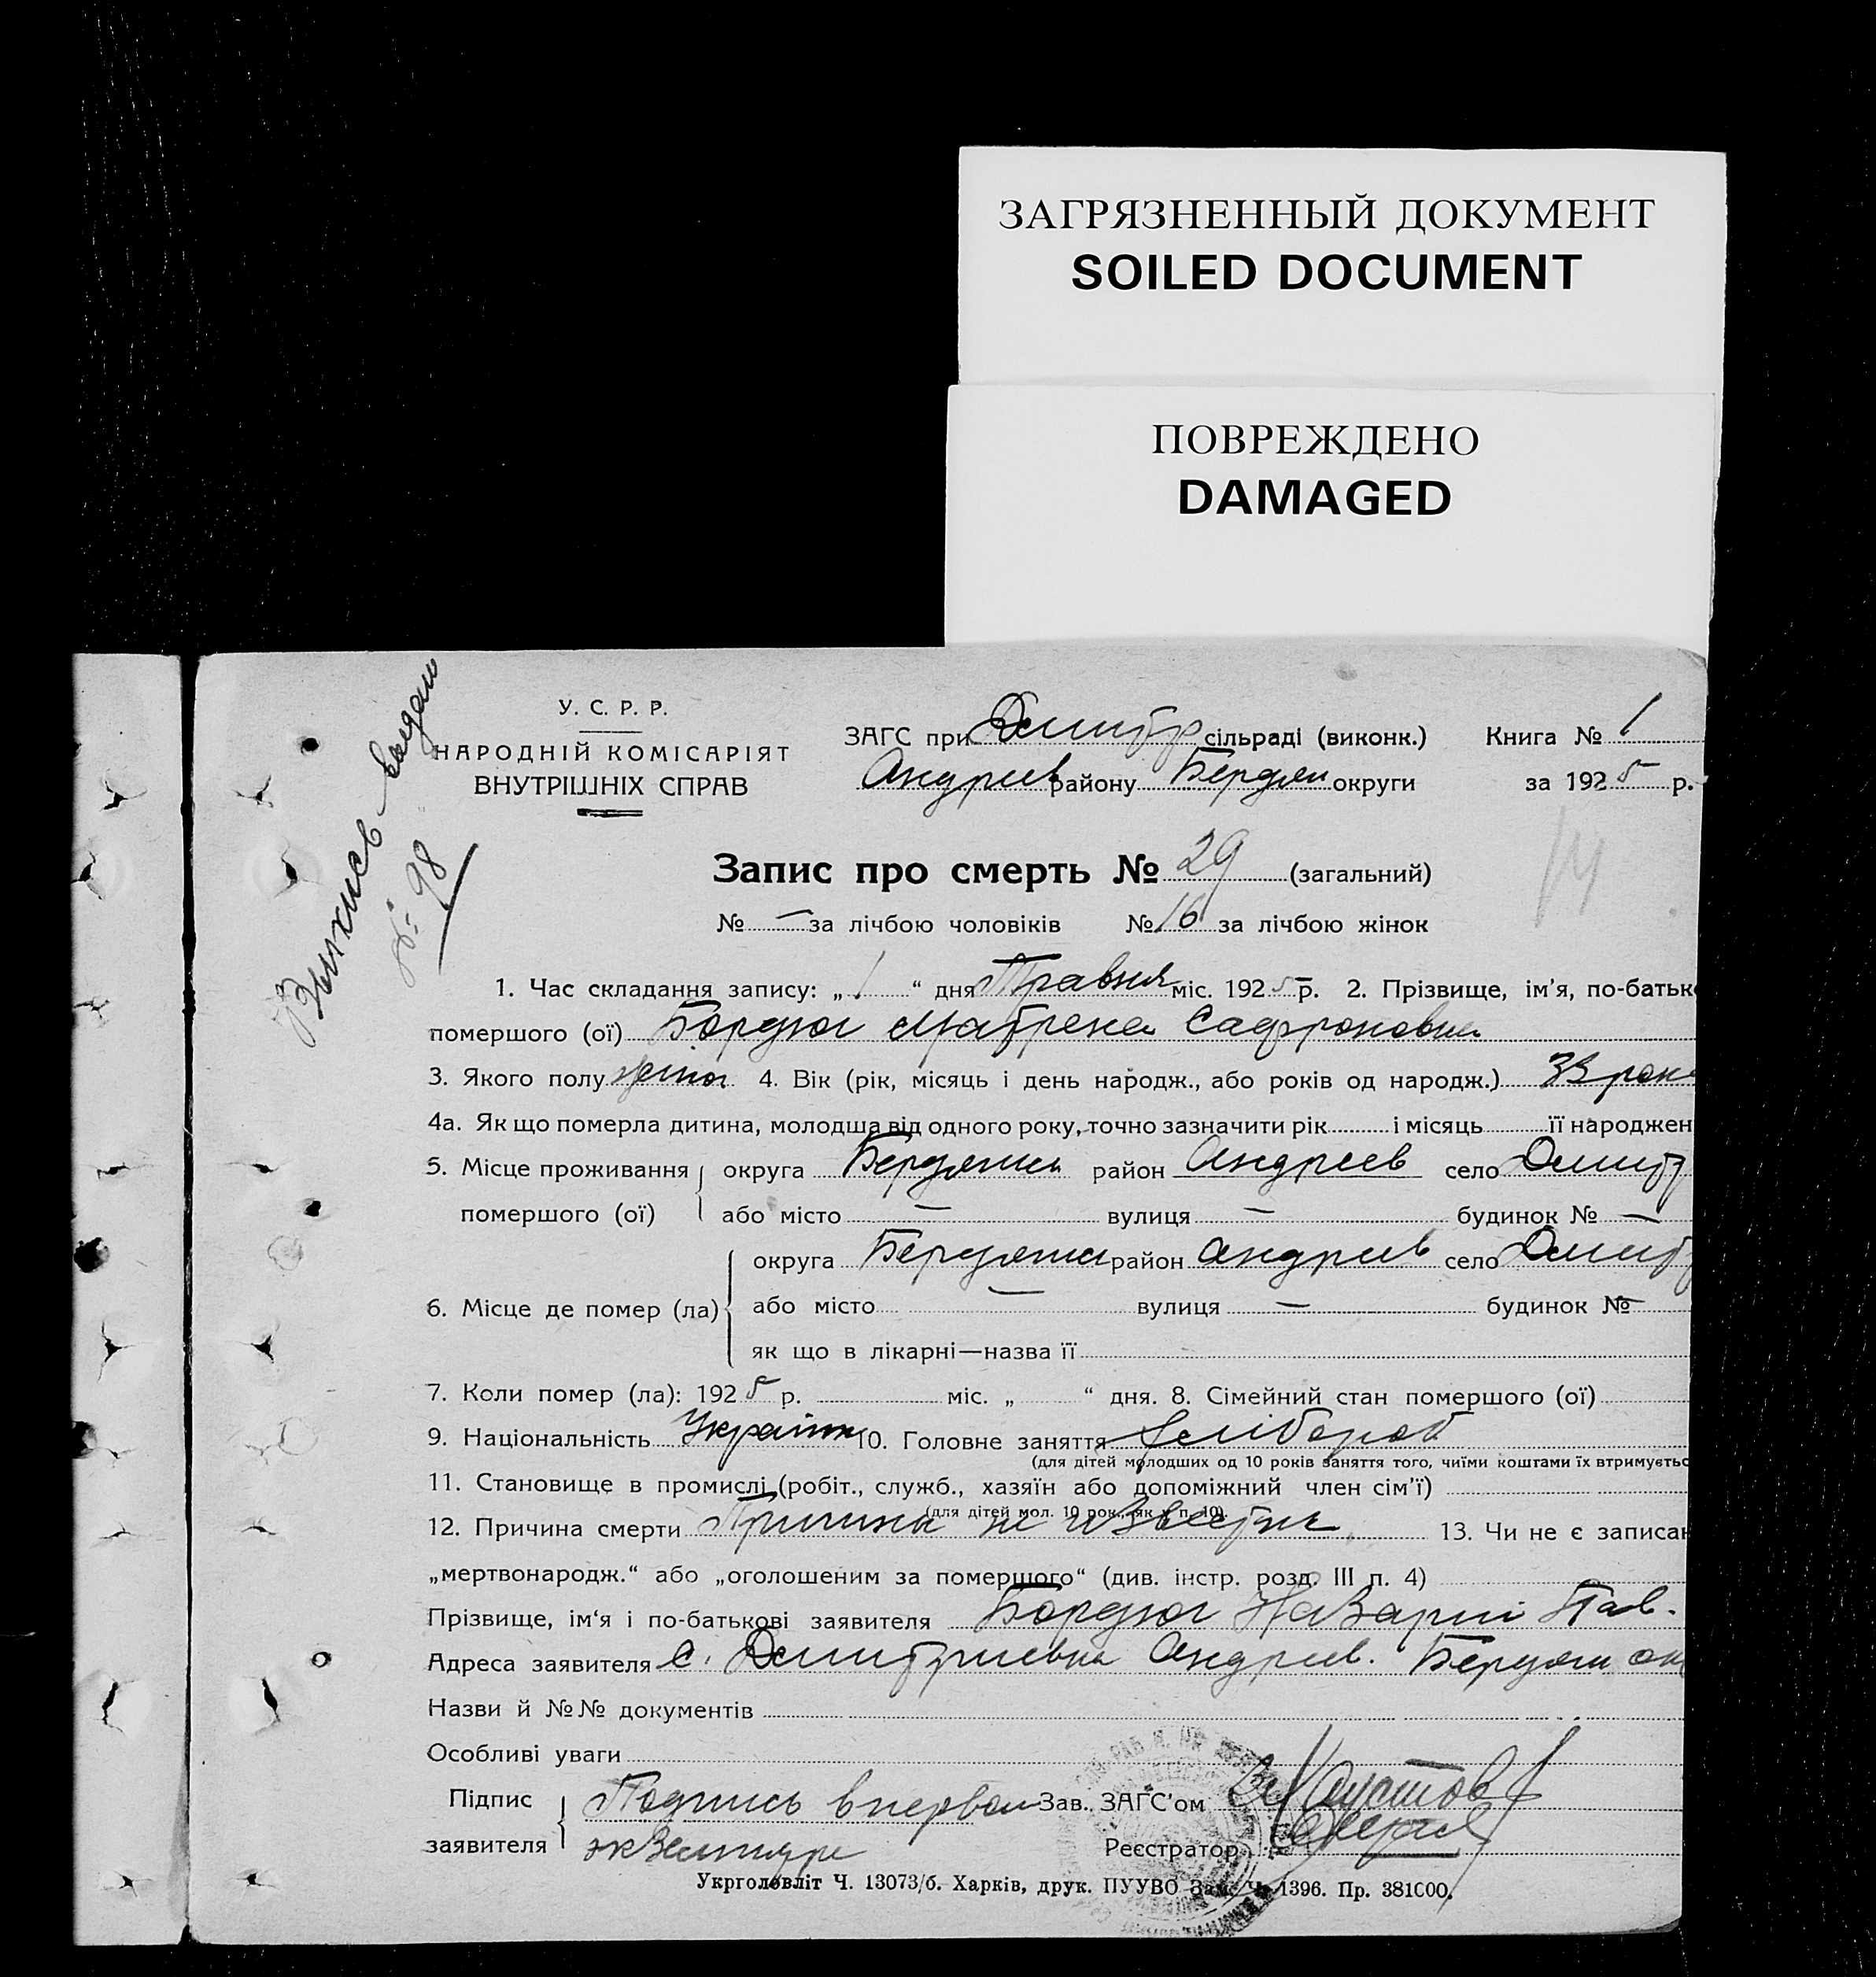 ЗАГРЯЗНЕННЫЙ ДОКУМЕНТ
SOILED DOCUMENT
ПОВРЕЖДЕНО
DAMAGED
У. С. Р. Р.
НАРОДНІЙ КОМІСАРІЯТ
ВНУТРІШНІХ СПРАВ
№ 98
ЗАГС при Дмитр сільраді (виконк.) Книга № 1
Андриев району Бердян округи за 1925 р.
Запис про смерть № 29 (загальний)
14
№ — за лічбою чоловіків № 16 за лічбою жінок
1. Час складання запису: „1“ дня Травня міс. 1925 р. 2. Прізвище, ім’я, по-батьк
помершого (ої) Бордюг Матрена Сафроновна
3. Якого полу жіноч 4. Вік (рік, місяць і день народж., або років од народж.) 33 рок
4а. Як що померла дитина, молодша від одного року, точно зазначити рік і місяць її народжен
5. Місце проживання округа Бердянск район Андреев село Дмитр
помершого (ої) або місто — вулиця — будинок № —
округа Бердянск район Андрив село Дмитр
6. Місце де помер (ла) або місто — вулиця — будинок №
як що в лікарні—назва її
7. Коли помер (ла): 1925 р. міс. „ “ дня. 8. Сімейний стан помершого (ої)
9. Національність Україн 10. Головне заняття Хлібороб
(для дітей молодших од 10 років заняття того, чиїми коштами їх втримуєтьс
11. Становище в промислі (робіт., служб., хазяїн або допоміжний член сім’ї)
(для дітей мол. 10 рок., як у п. 10).
12. Причина смерти Причина не известна 13. Чи не є записан
„мертвонародж.“ або „оголошеним за помершого“ (див. інстр. розд. III п. 4)
Прізвище, ім‘я і по-батькові заявителя Бордюг Назарий Пав.
Адреса заявителя с. Дмитриевка Андрив. Бердян ок
Назви й №№ документів
Особливі уваги
Підпис Подпись в первом Зав. ЗАГС’ом
заявителя экземпляре Реєстратор
Укрголовліт Ч. 13073/б. Харків, друк. ПУУВО Зам. Ч. 1396. Пр. 381000.